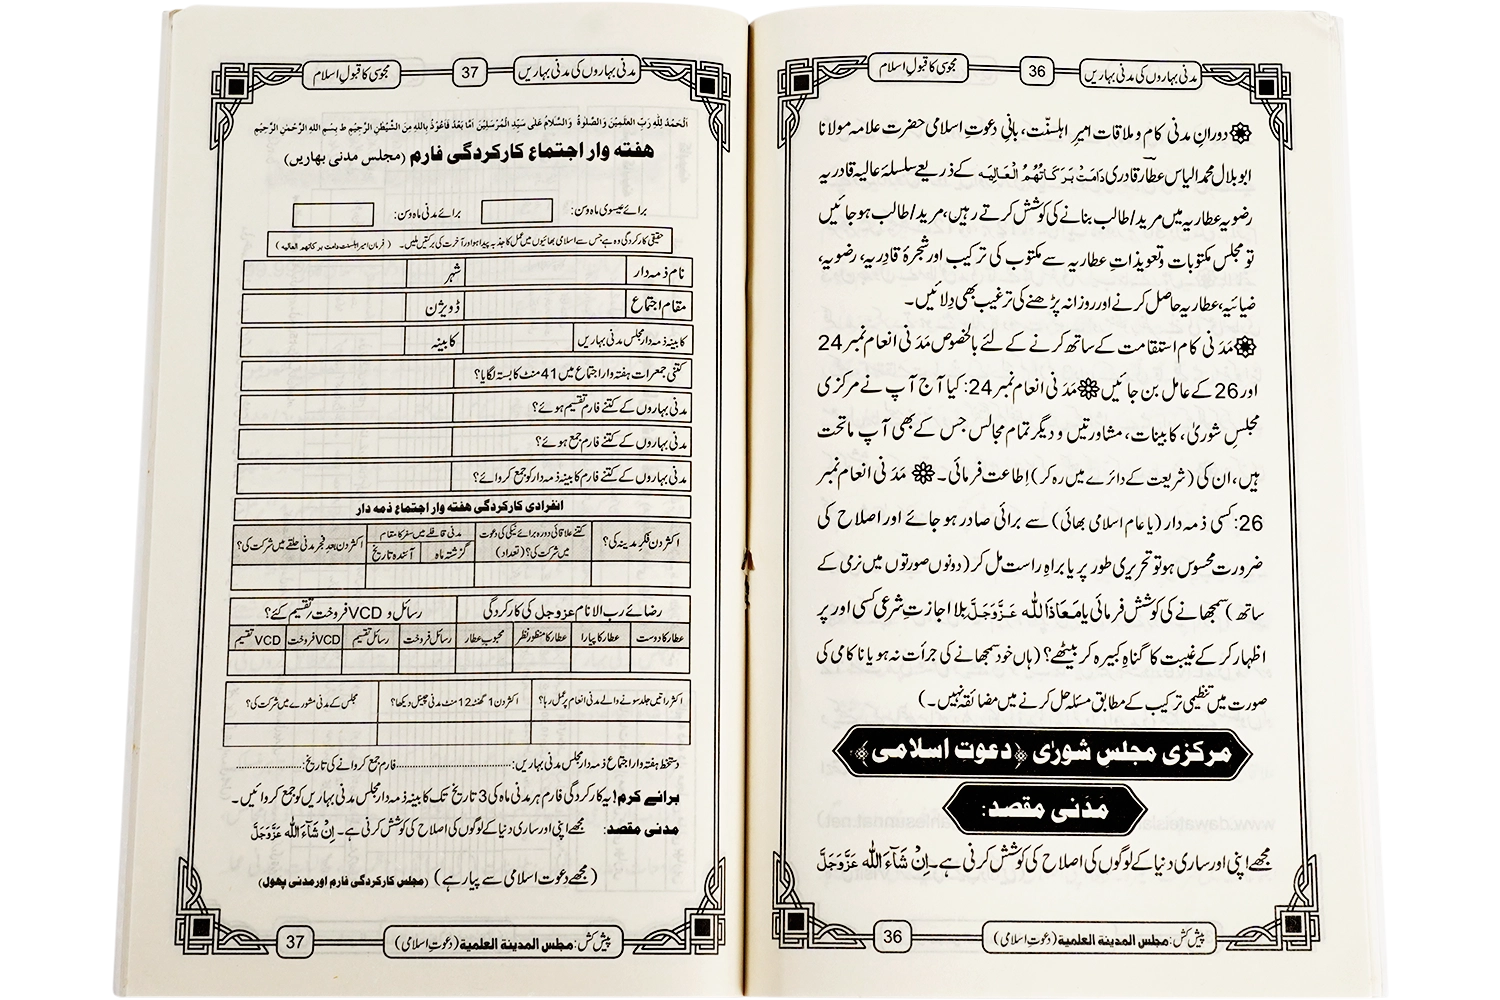 مدنی بہاروں کی مدنی بہاریں
36
مجوسی کا قبولِ اسلام
دورانِ مدنی کام و ملاقات امیرِ اہلسنّت، بانیِ دعوتِ اسلامی حضرت علامہ مولانا
ابو بلال محمد الیاس عطار قادری دَامَتْ بَرَکَاتُہُمُ الْعَالِیَہ کے ذریعے سلسلۂ عالیہ قادریہ
رضویہ عطاریہ میں مرید/طالب بنانے کی کوشش کرتے رہیں، مرید/طالب ہو جائیں
تو مجلس مکتوبات و تعویذاتِ عطاریہ سے مکتوب کی ترکیب اور شجرۂ قادریہ، رضویہ،
ضیائیہ، عطاریہ حاصل کرنے اور روزانہ پڑھنے کی ترغیب بھی دِلائیں۔
مَدَنی کام استقامت کے ساتھ کرنے کے لئے بالخصوص مَدَنی انعام نمبر 24
اور 26 کے عامل بن جائیں مَدَنی انعام نمبر 24: کیا آج آپ نے مرکزی
مجلسِ شوریٰ، کابینات، مشاورتیں و دیگر تمام مجالس جس کے بھی آپ ماتحت
ہیں، ان کی (شریعت کے دائرے میں رہ کر) اِطاعت فرمائی۔ مَدَنی انعام نمبر
26: کسی ذمہ دار (یا عام اسلامی بھائی) سے برائی صادر ہو جائے اور اصلاح کی
ضرورت محسوس ہو تو تحریری طور پر یا براہِ راست مل کر (دونوں صورتوں میں نرمی کے
ساتھ) سمجھانے کی کوشش فرمائی یا مَعَاذَ اللّٰہ عَزَّوَجَلَّ بِلا اجازتِ شرعی کسی اور پر
اظہار کر کے غیبت کا گناہِ کبیرہ کر بیٹھے؟ (ہاں خود سمجھانے کی جرأت نہ ہو یا ناکامی کی
صورت میں تنظیمی ترکیب کے مطابق مسئلہ حل کرنے میں مضائقہ نہیں۔)
مرکزی مجلسِ شوریٰ ﴿دعوتِ اسلامی﴾
مَدَنی مقصد:
مجھے اپنی اور ساری دنیا کے لوگوں کی اصلاح کی کوشش کرنی ہے۔ اِنْ شَآءَ اللّٰہ عَزَّوَجَلَّ
پیش کش: مجلس المدینۃ العلمیۃ (دعوتِ اسلامی)
36
مدنی بہاروں کی مدنی بہاریں
37
مجوسی کا قبولِ اسلام
اَلْحَمْدُ لِلّٰہِ رَبِّ الْعٰلَمِیْنَ وَالصَّلٰوۃُ وَالسَّلَامُ عَلٰی سَیِّدِ الْمُرْسَلِیْنَ اَمَّا بَعْدُ فَاَعُوْذُ بِاللّٰہِ مِنَ الشَّیْطٰنِ الرَّجِیْمِ ط بِسْمِ اللّٰہِ الرَّحْمٰنِ الرَّحِیْمِ
ہفتہ وار اجتماع کارکردگی فارم (مجلس مدنی بہاریں)
برائے عیسوی ماہ و سن: برائے مدنی ماہ و سن:
حقیقی کارکردگی وہ ہے جس سے اسلامی بھائیوں میں عمل کا جذبہ پیدا ہو اور آخرت کی برکتیں ملیں۔ (فرمانِ امیرِ اہلسنت دامت برکاتہم العالیہ)
نام ذمہ دار شہر
مقامِ اجتماع ڈویژن
کابینہ ذمہ دار مجلس مدنی بہاریں کابینہ
کتنی جمعرات ہفتہ وار اجتماع میں 41 منٹ کا بستہ لگایا؟
مدنی بہاروں کے کتنے فارم تقسیم ہوئے؟
مدنی بہاروں کے کتنے فارم جمع ہوئے؟
مدنی بہاروں کے کتنے فارم کابینہ ذمہ دار کو جمع کروائے؟
انفرادی کارکردگی ہفتہ وار اجتماع ذمہ دار
اکثر دن فکرِ مدینہ کی؟ کتنے علاقائی دورہ برائے نیکی کی دعوت میں شرکت کی؟ (تعداد) مدنی قافلے میں سفر کا مقام اکثر دن بعدِ فجر مدنی حلقے میں شرکت کی؟
گزشتہ ماہ آئندہ تاریخ
رضائے رب الانام عزوجل کی کارکردگی رسائل و VCD فروخت/تقسیم کئے؟
عطار کا دوست عطار کا پیارا عطار کا منظورِ نظر محبوبِ عطار رسائل فروخت رسائل تقسیم VCD فروخت VCD تقسیم
اکثر راتیں جلد سونے والے مدنی انعام پر عمل رہا؟ اکثر دن 1 گھنٹہ 12 منٹ مدنی چینل دیکھا؟ مجلس کے مدنی مشورے میں شرکت کی؟
دستخط ہفتہ وار اجتماع ذمہ دار مجلس مدنی بہاریں:.................... فارم جمع کروانے کی تاریخ:....................
برائے کرم! یہ کارکردگی فارم ہر مدنی ماہ کی 3 تاریخ تک کابینہ ذمہ دار مجلس مدنی بہاریں کو جمع کروائیں۔
مدنی مقصد: مجھے اپنی اور ساری دنیا کے لوگوں کی اصلاح کی کوشش کرنی ہے۔ اِنْ شَآءَ اللّٰہ عَزَّوَجَلَّ
(مجھے دعوتِ اسلامی سے پیار ہے) (مجلس کارکردگی فارم اور مدنی پھول)
پیش کش: مجلس المدینۃ العلمیۃ (دعوتِ اسلامی)
37